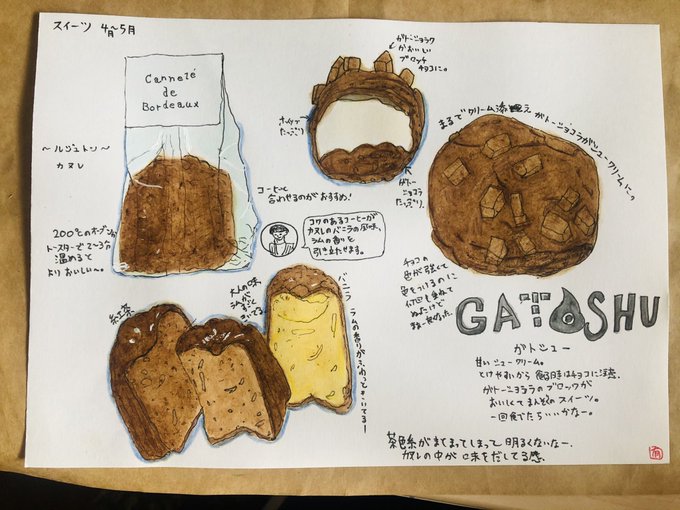 スイーツ 4月〜5月
Cannelé
de
Bordeaux
〜ルジュトン〜
カヌレ
200℃のオーブン
トースターで2〜3分
温めると
よりおいしい〜。
コーヒーと
合わせるのがおすすめ!
コクのあるコーヒーが
カヌレのバニラの風味、
ラムの香りを
引き立たせます。
紅茶
大人の味
バニラ ラムの香りがふわっときいてるー
ガトーショコラ
かわいい
ブロック
チョコに。
ホイップ
たっぷり
ガトー
ショコラ
たっぷり。
まるでクリーム添え ガトーショコラがシュークリームに。
チョコの
色が強くて
何回も重ねて
ぬったけど
GATOSHU
ガトシュー
甘いシュークリーム。
とけやすいから 食べる時はチョコに注意。
ガトーショコラのブロックが
おいしくてまんぞくのスイーツ。
一回食べたらいいかなー。
茶色系がまとまってしまって 明るくないなー。
カヌレの中が味をだしてる感。